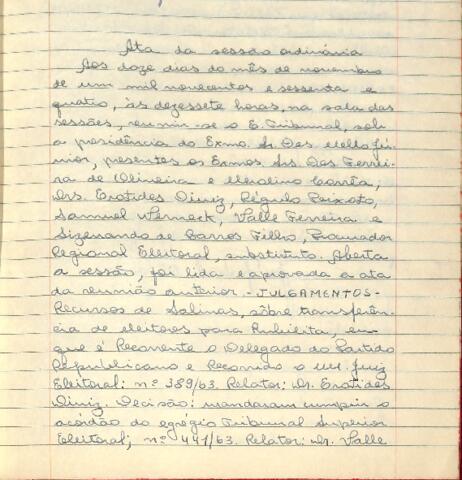 Ata da sessão ordinária
Aos doze dias do mês de novembro
de um mil novecentos e sessenta e
quatro, às dezessete horas, na sala das
sessões, reuniu-se o E. Tribunal, sob
a presidência do Exmo. Sr. Des. Mello Jú-
nior, presentes os Exmos. Srs. Des. Ferrei-
ra de Oliveira e Merolino Corrêa,
Drs. Erotides Diniz, Régulo Peixoto,
Samuel Werneck, Valle Ferreira e
Sizenando de Barros Filho, Procurador
Regional Eleitoral, substituto. Aberta
a sessão, foi lida e aprovada a ata
da reunião anterior. - JULGAMENTOS -
Recursos de Salinas, sôbre transferên-
cia de eleitores para Rubelita, em
que é Recorrente o Delegado do Partido
Republicano e Recorrido o MM. Juiz
Eleitoral: nº 389/63. Relator: Dr. Erotides
Diniz. Decisão: mandaram cumprir o
acórdão do egrégio Tribunal Superior
Eleitoral; nº 441/63. Relator: Dr. Valle